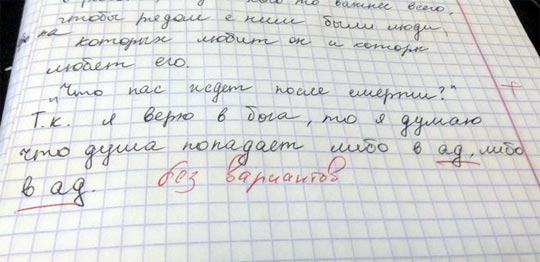 важнее всего,
чтобы рядом с ним были люди,
на которых любит он и которы
любет его.
"Что нас ждет после смерти?"
Т.к. я верю в бога, то я думаю
что душа попадает либо в ад, либо
в ад. без вариантов